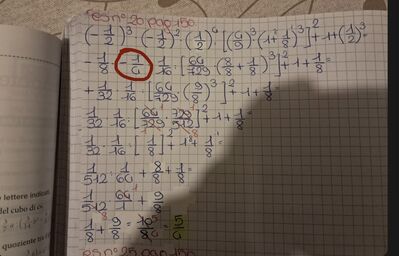 es n° 20 pag 150
(-1/2)³ · (-1/2)² : (1/2)⁴ : [(4/9)³ · (1+1/8)³]² + 1 + (1/2)³ =
-1/8 · -1/4 : 1/16 : [64/729 · (8/8 + 1/8)³]² + 1 + 1/8 =
+1/32 : 1/16 : [64/729 · (9/8)³]² + 1 + 1/8 =
1/32 : 1/16 : [64/729 · 729/512]² + 1 + 1/8 =
1/32 : 1/16 : [1/8]² + 1 + 1/8 =
1/512 : 1/64 + 8/8 + 1/8 =
1/512 · 64/1 + 9/8
1/8 + 9/8 = 10/8 = 5/4
lettere indican
del cubo di
quoziente tra